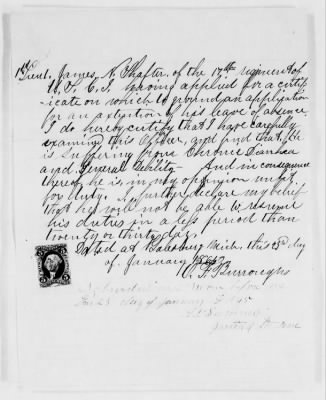 1st Lieut. James N. Shafter of the 17th regiment of
U. S. C. I. having applied for a certif-
icate on which to ground an application
for an extention of his leave of absence
I do hereby certify that I have carefully
examined this Officer, and find that he
is suffering from Chronic Diarrhea
and General debility. And in consequence
thereof he is in my opinion unfit
for duty. I further declare my belief
that he will not be able to resume
his duties in a less period than
twenty or thirty days.
Dated at Galesburg Mich. this 23d day
of January
Burroughs
Subscribed and sworn before me
this 23 day of January
Justice of the Peace